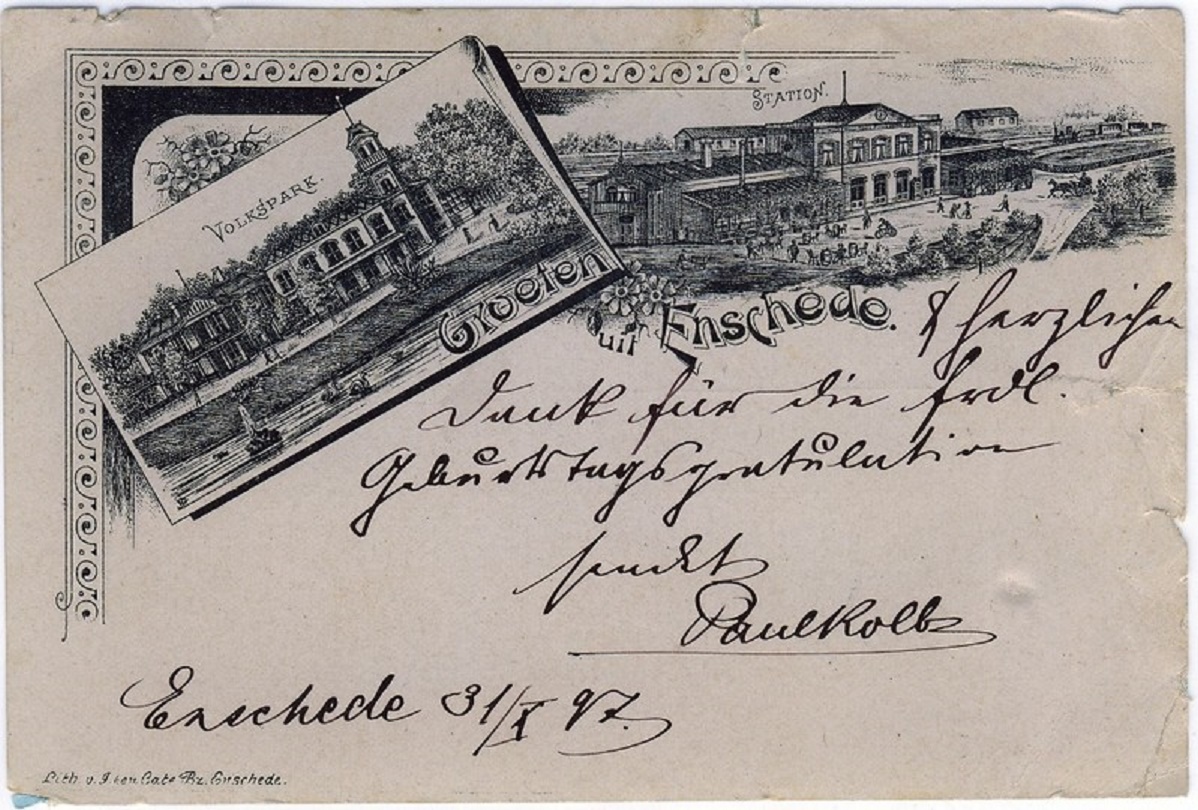 STATION.
VOLKSPARK.
Groeten
uit Enschede. & herzlichen
Dank für die frdl.
Geburtstagsgratulation
sendet
Paul Kolb
Enschede 31/X 97.
Lith. v. J. ten Cate Bz. Enschede.